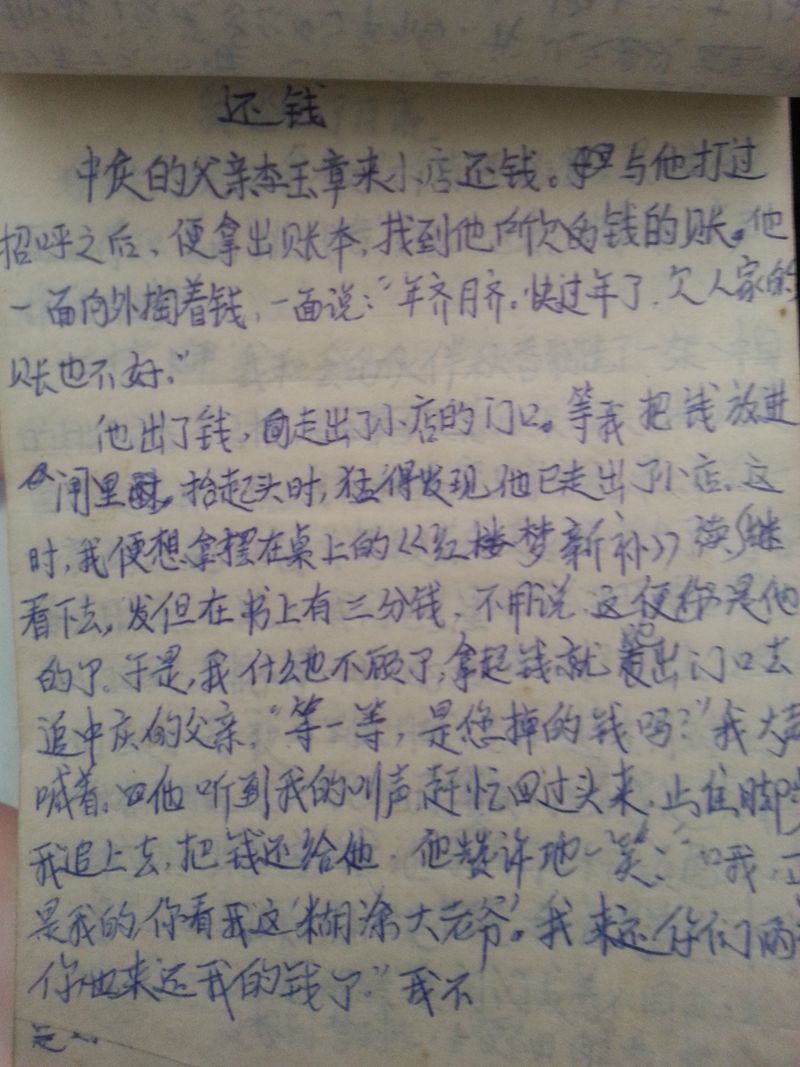 还钱
中庆的父亲李玉章来小店还钱。与他打过
招呼之后、便拿出账本,找到他所欠的钱的账。他
一面向外掏着钱,一面说:“年齐月齐。快过年了,欠人家的
账也不好。”
他出了钱,走出了小店的门口。等我把钱放进
闸里,抬起头时,猛得发现,他已走出了小店。这
时,我便想拿摆在桌上的《红楼梦新补》继
看下去,发但在书上有三分钱,不用说,这便是他
的了。于是,我什么也不顾了,拿起钱就出门口去
追中庆的父亲。“等一等,是您掉的钱吗?”我大声
喊着。他听到我的叫声,赶忙回过头来,止住脚步
我追上去,把钱还给他,他赞许地一笑:“哦,正
是我的,你看我这‘糊涂大老爷’。我来还你们
你也来还我的钱了。”我不